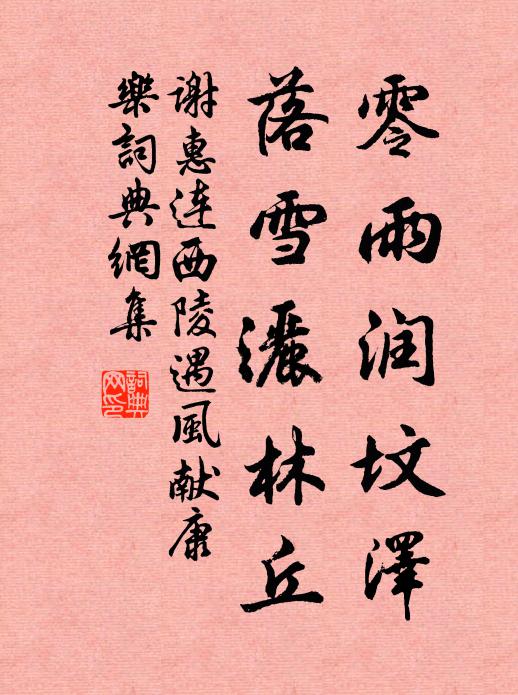 零雨润坟澤
落雪灑林丘
谢惠连西陵遇風献康
樂詞典網集
詞典
网印